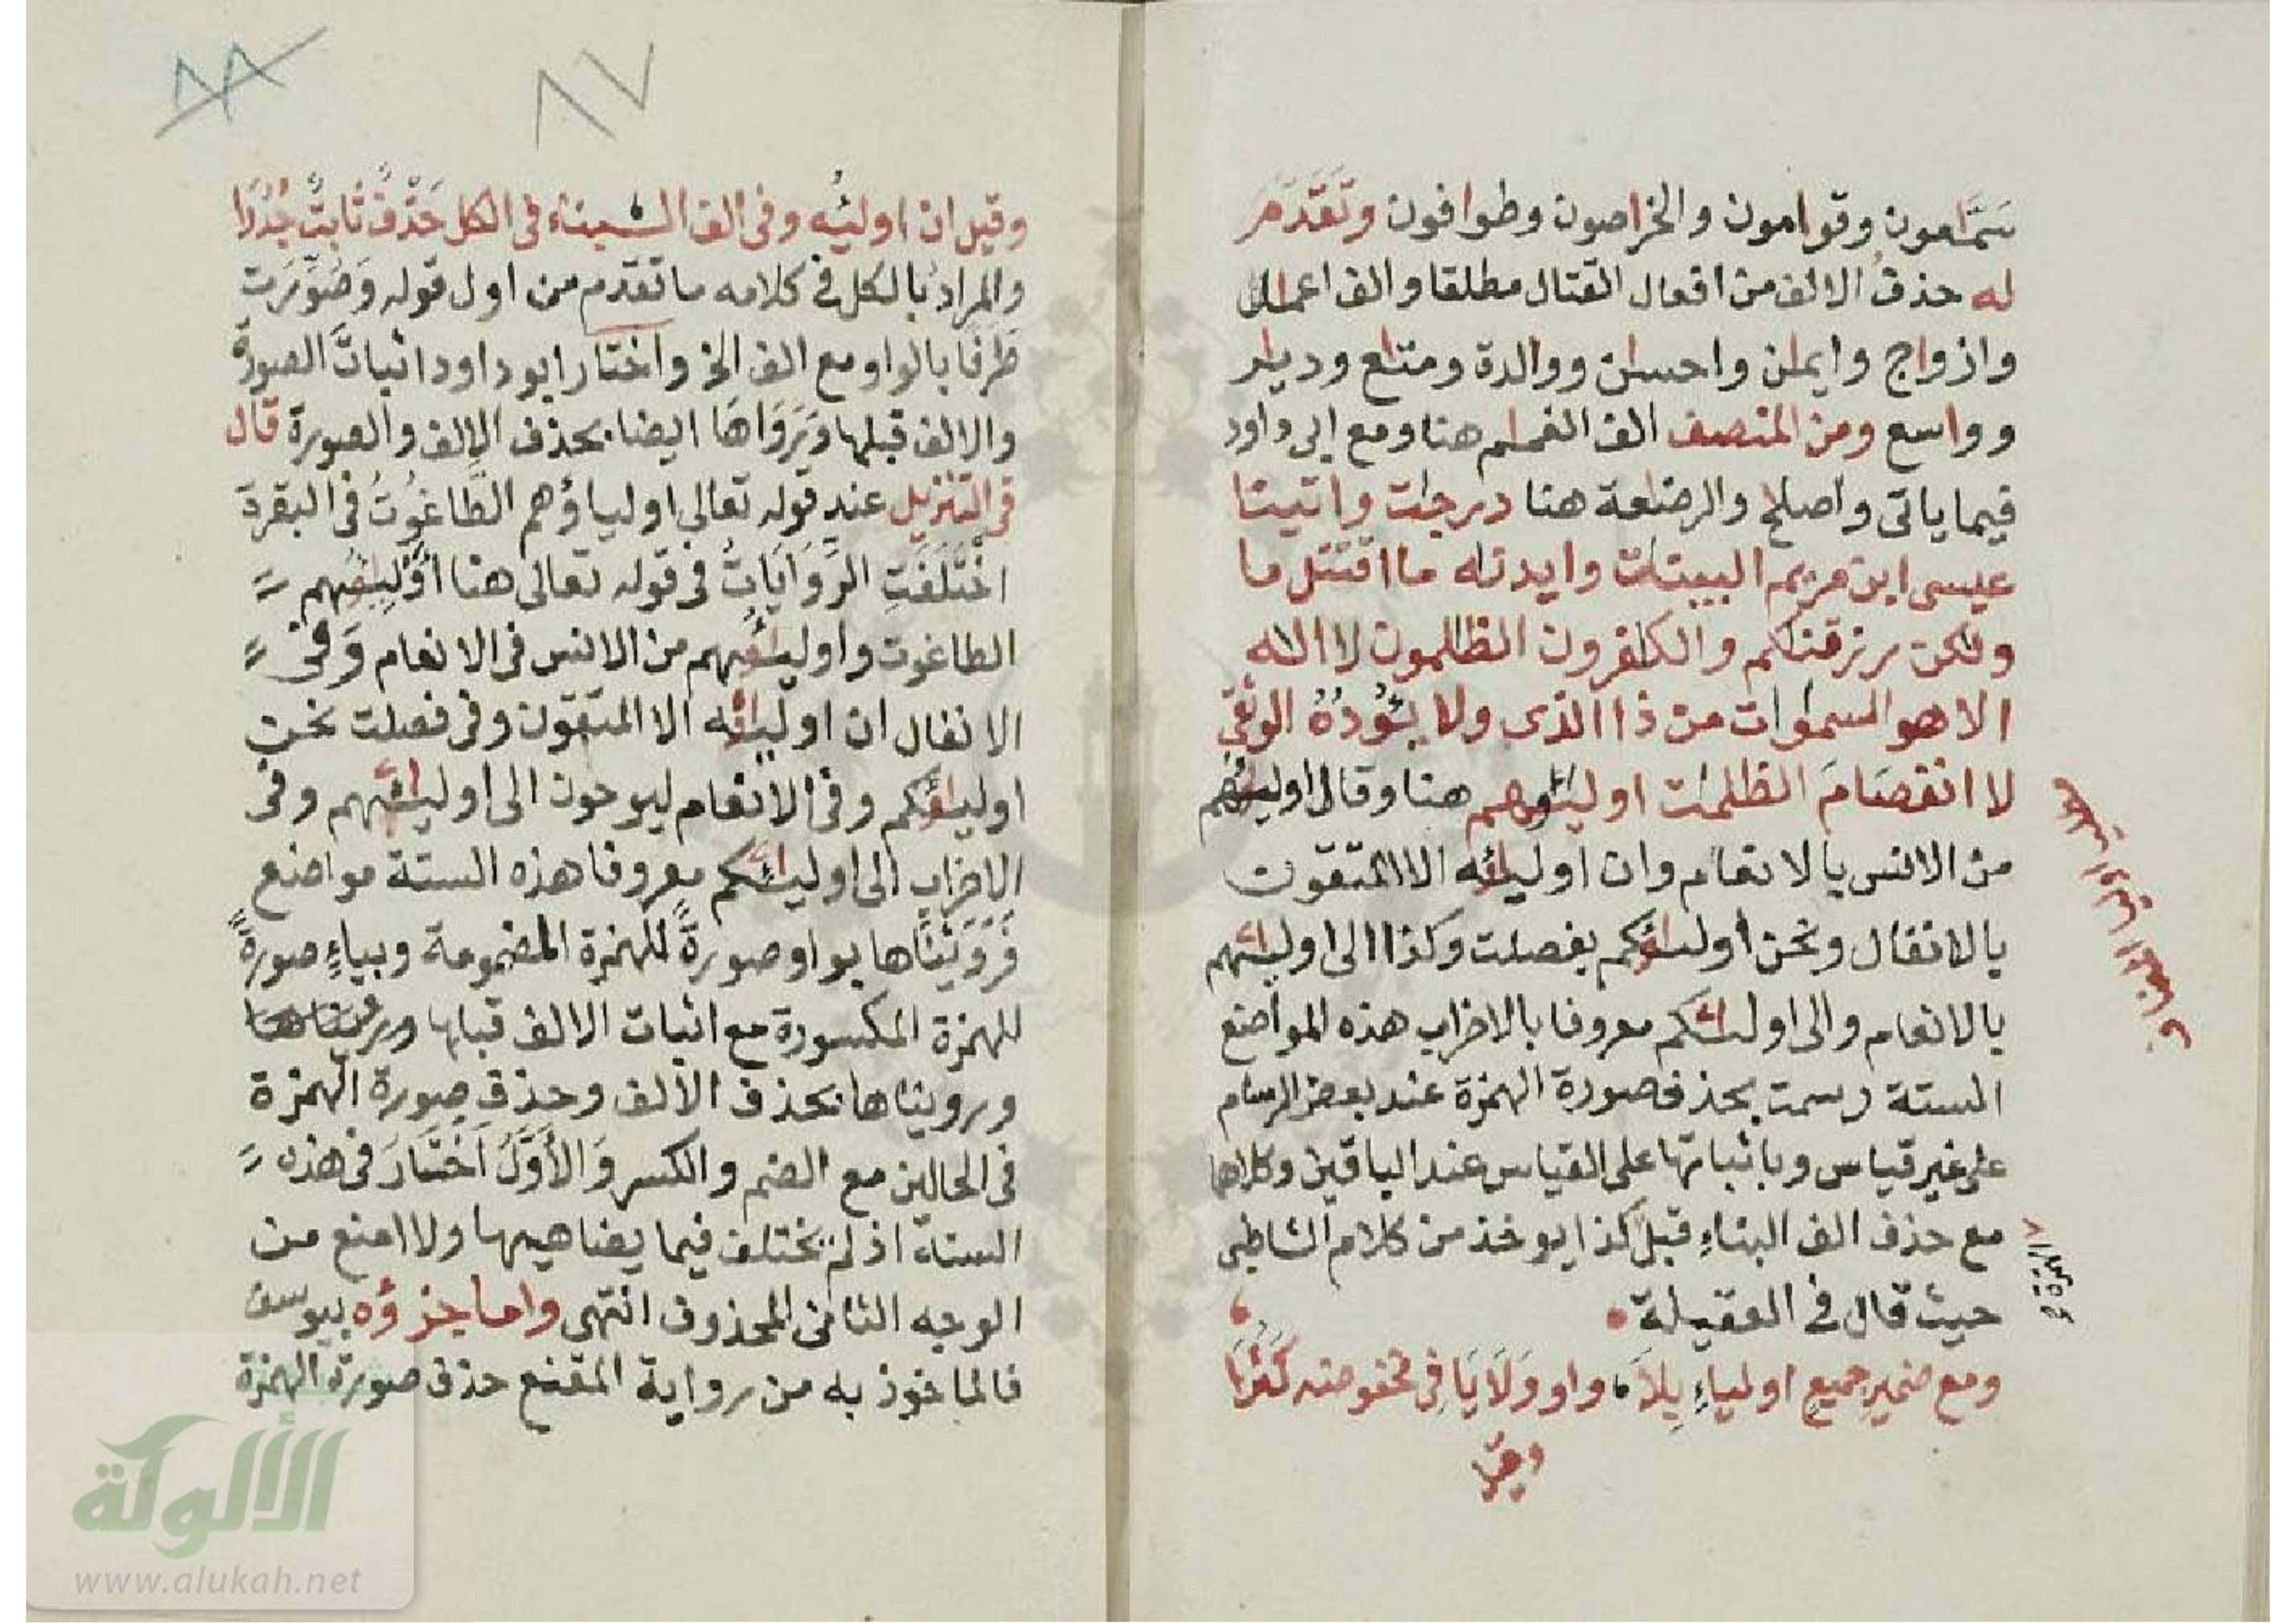 سَمَّاعون وقوامون والخراصون وطوافون وتَقَدَّمَ
له حذفُ الالف من افعال القتال مطلقا والف اعمال
وازواج وايمان واحسان ووالدة ومتاع وديار
وواسع ومن المنصف الف الغمام هنا ومع ابى داود
فيما ياتى واصلاح والرضاعة هنا درجات واتينا
عيسى ابن مريم البينات وايدناه ما اقتتل ما
ولكن رزقناكم والكافرون الظالمون لا اله
الا هو السموات من ذا الذى ولا يَؤُدُهُ الوثقى
لا انفصَامَ الظلمات اولياؤهم هنا وقال اولياؤهم
من الانس بالانعام وان اولياؤه الا المتقون
بالانفال ونحن اولياؤكم بفصلت وكذا الى اوليائهم
بالانعام والى اوليائكم معروفا بالاحزاب هذه المواضع
الستة رسمت بحذف صورة الهمزة عند بعض الرسام
على غير قياس وباثباتها على القياس عند الباقين وكلاهما
مع حذف الف البناءِ قبل كذا يوخذ من كلام الشاطبى
الهمزة
حيث قال فى العقيلة
ومع ضميرِ جميعٍ اولياءِ بِلَا واو وَلَا يَا فى مخفوضه كَثُرَا
وقيل
٨٧
٨٨
وقيل ان اوليؤُه وفى الف البناء فى الكل حَذْفٌ ثابتٌ جُدُرَا
والمرادُ بالكل فى كلامه ما تقدم من اول قوله وَصُوِّرَت
طَرَفًا بالواو مع الف الخ واختار ابو داود اثباتَ الصورة
والالف قبلها وَيَرْوَاهَا ايضا بحذف الالف والصورة قال
فى التنزيل عند قوله تعالى اولياؤهم الطَّاغُوتُ فى البقرة
اخْتَلَفَتِ الرِّوَايَاتُ فى قوله تعالى هنا أَوْلِيَاؤُهم
الطاغوت واولياؤهم من الانس فى الانعام وَفى
الانفال ان اولياؤه الا المتقون وفى فصلت نحن
اولياؤكم وفى الانعام ليوحون الى اوليائهم وفى
الاحزاب الى اوليائكم معروفا هذه الستة مواضع
فَرَوَيْنَاها بواو صورةً للهمزة المضمومة وبياءٍ صورةً
للهمزة المكسورة مع اثبات الالف قبلها
ورويناها بحذف الالف وحذف صورة الهمزة
فى الحالين مع الضم والكسر وَالأَوَّلُ اَخْتَارَ فى هذه
الستة اذ لم يختلف فيما يضاهيها ولا امنع من
الوجه الثانى المحذوف انتهى واما جزؤه بيوسف
فالماخوذ به من رواية المقنع حذف صورة الهمزة
الألوكة
www.alukah.net